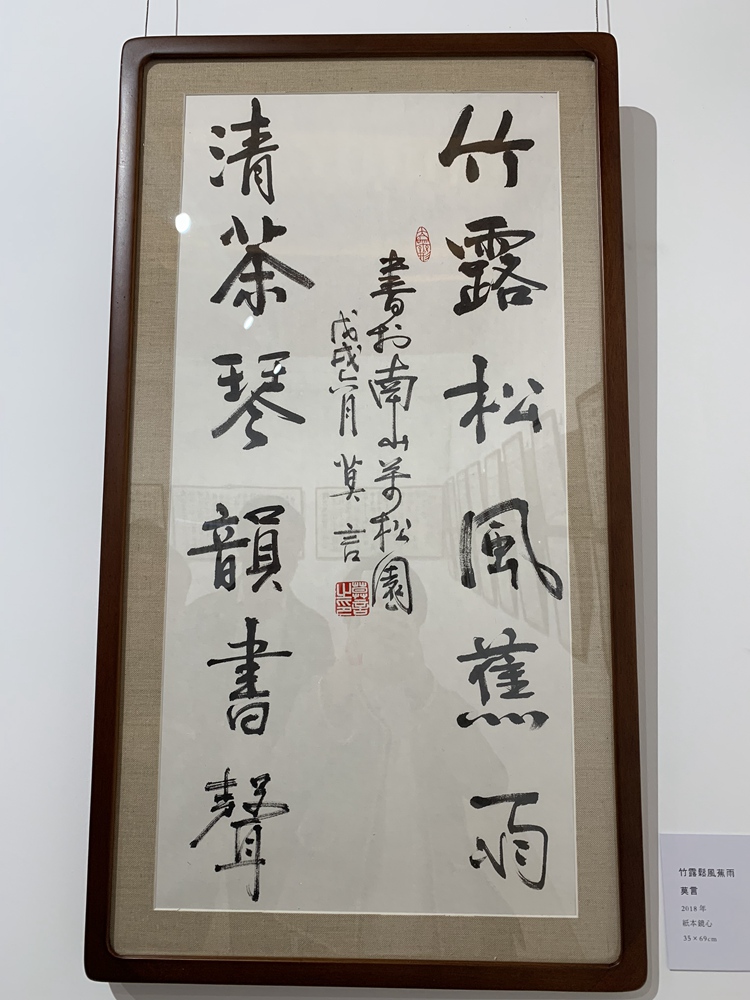 竹露松風蕉雨
書於南山萬松園
戊戌六月 莫言
莫言之印
清茶琴韻書聲
竹露鬆風蕉雨
莫言
2018 年
紙本鏡心
35×69cm